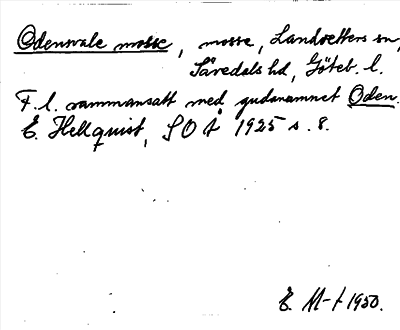 Odensvale mosse, mosse, Landvetters sn,
Sävedals hd, Göteb. l.
F. l. sammansatt med gudanamnet Oden.
E. Hellquist, SOÅ 1925 s. 8.
E. M-t 1950.